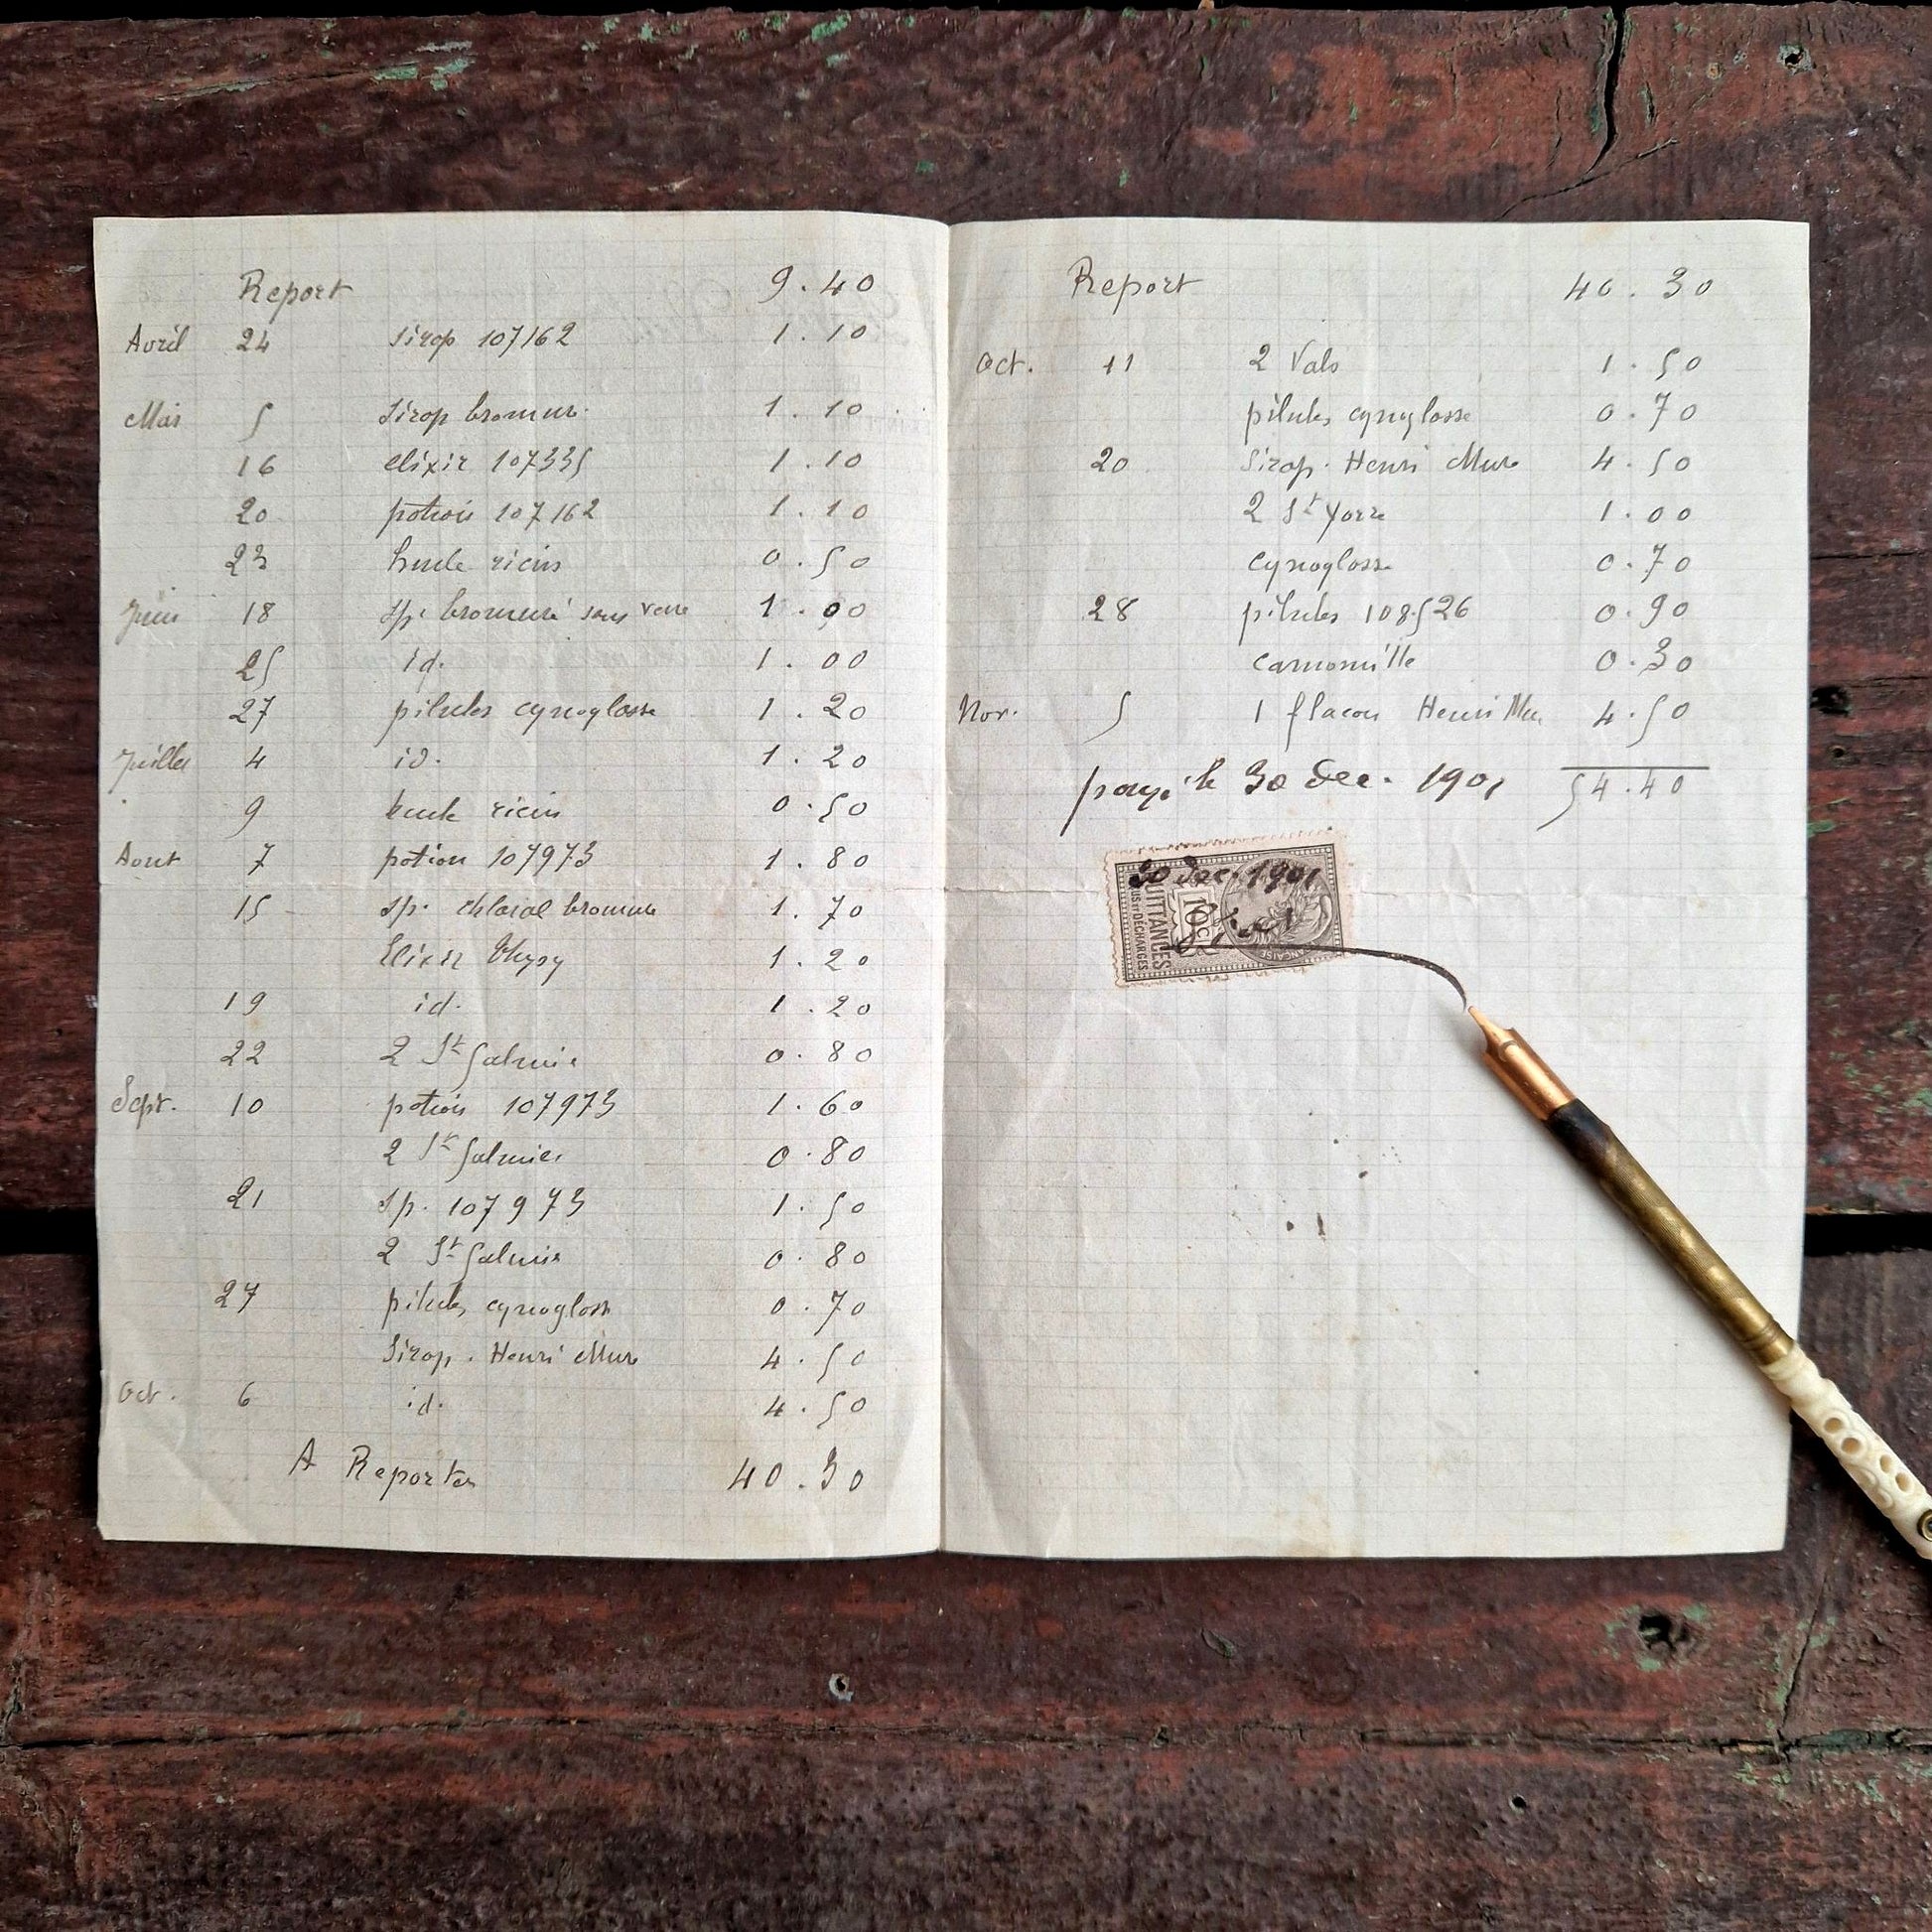 Report 9.40
Avril 24 Sirop 107162 1.10
Mai 5 Sirop bromure 1.10
16 elixir 107335 1.10
20 potion 107162 1.10
23 huile ricin 0.50
Juin 18 sp. bromuré sans verre 1.00
25 id. 1.00
27 pilules cynoglosse 1.20
Juillet 4 id. 1.20
9 huile ricin 0.50
Aout 7 potion 107973 1.80
15 sp. chloral bromure 1.70
Elixir 1.20
19 id. 1.20
22 2 St Galmier 0.80
Sept. 10 potion 107973 1.60
2 St Galmier 0.80
21 sp. 107973 1.50
2 St Galmier 0.80
27 pilules cynogloss 0.70
Sirop. Henri Mure 4.50
Oct. 6 id. 4.50
A Reporter 40.30
Report 40.30
Oct. 11 2 Vals 1.50
pilules cynoglosse 0.70
20 Sirop. Henri Mure 4.50
2 St Yorre 1.00
cynoglosse 0.70
28 pilules 108526 0.90
camomille 0.30
Nov. 5 1 flacon Henri Mure 4.50
payé le 30 Dec. 1901 54.40
30 Dec. 1901
QUITTANCES
REÇUS ET DÉCHARGES
10c
FRANÇAISE